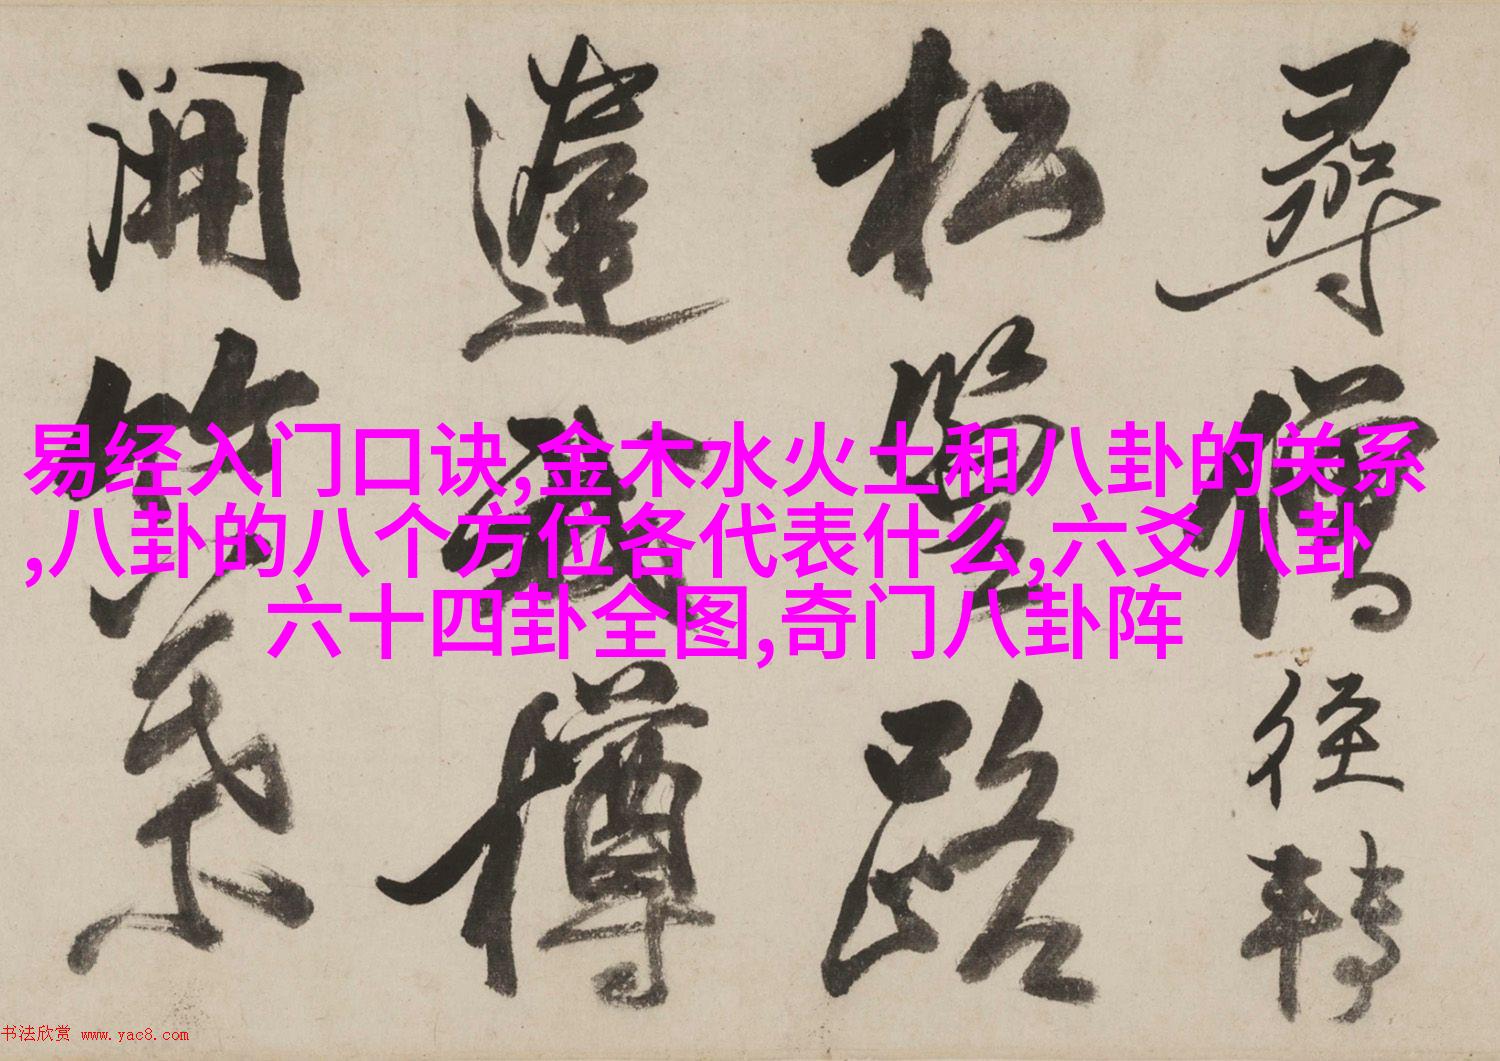 尋僧徑轉
松陰路
蓬
樽
開笑
易经入门口诀,金木水火土和八卦的关系
,八卦的八个方位各代表什么,六爻八卦
六十四卦全图,奇门八卦阵
书法欣赏 www.yac8.com